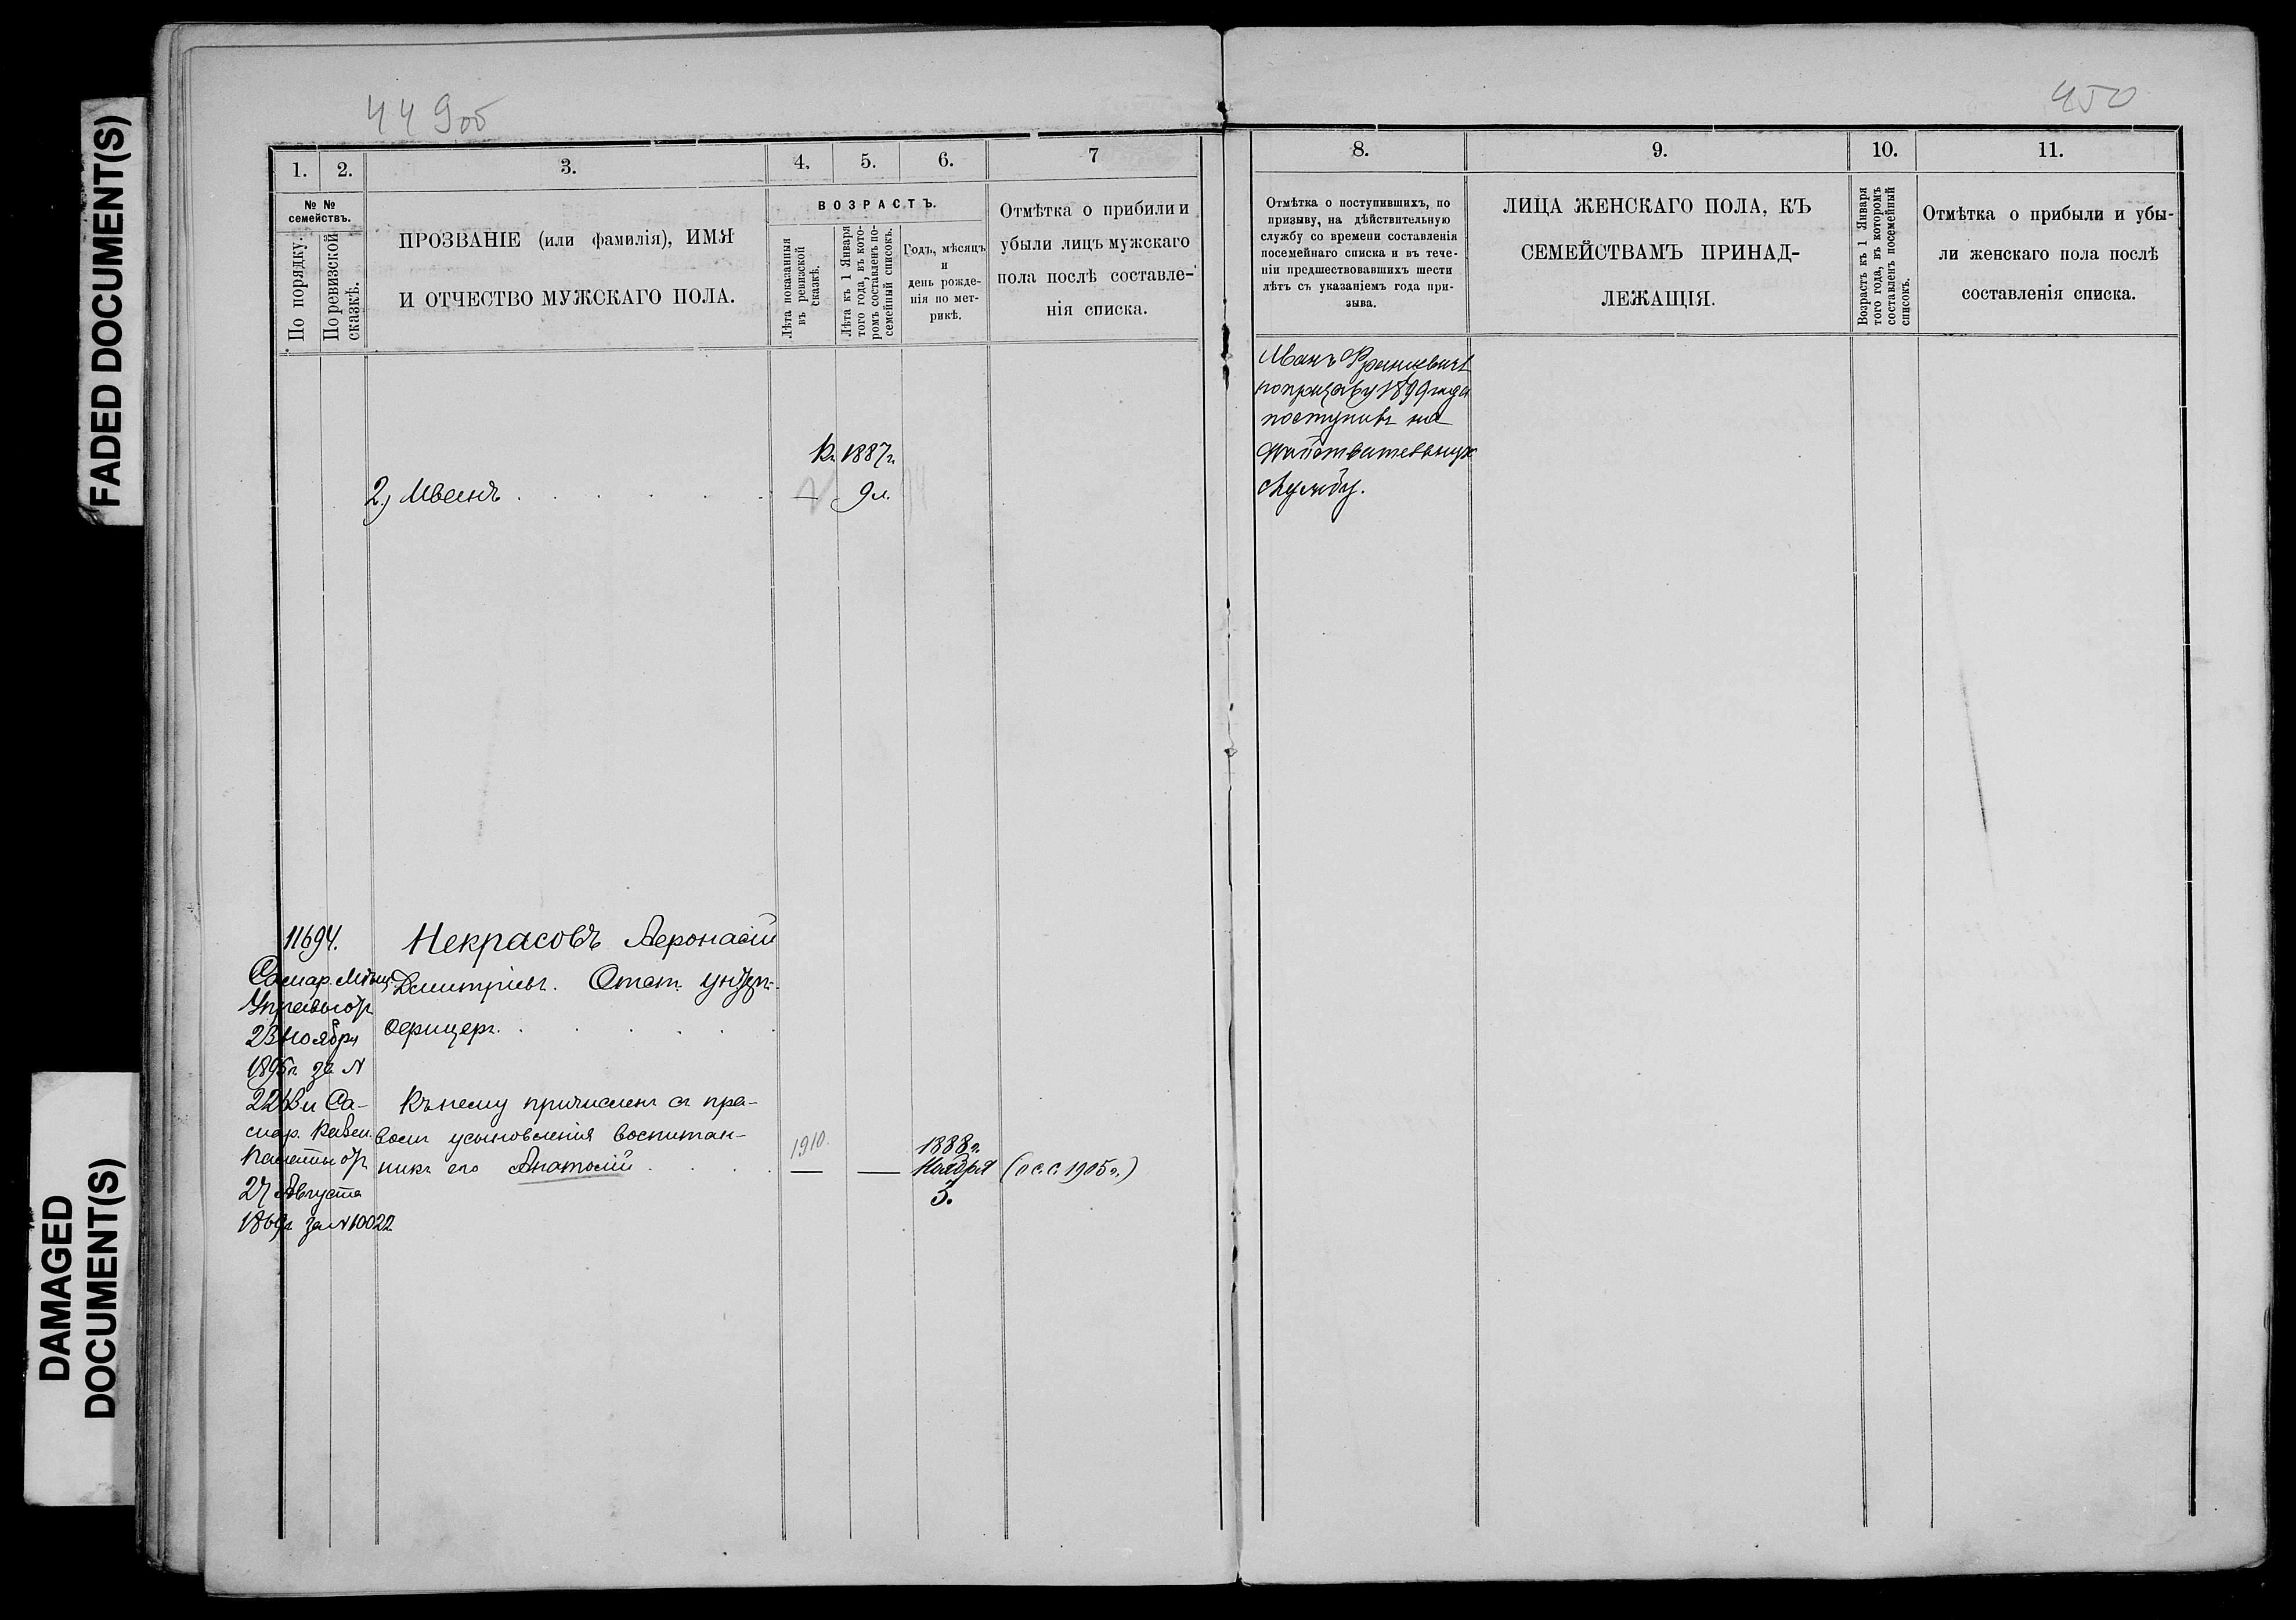 FADED DOCUMENT(S)
DAMAGED
DOCUMENT(S)
449об
1.
2.
3.
4.
5.
6.
7
№ №
семействъ.
По порядку.
По ревизской
сказкѣ.
ПРОЗВАНІЕ (или фамилія), ИМЯ
И ОТЧЕСТВО МУЖСКАГО ПОЛА.
ВОЗРАСТЪ.
Лѣта показанныя
въ ревизской
сказкѣ.
Лѣта къ 1 Января
того года, въ кото-
ромъ составленъ по-
семейный списокъ.
Годъ, мѣсяцъ
и
день рожде-
нія по мет-
рикѣ.
Отмѣтка о прибыли и
убыли лицъ мужскаго
пола послѣ составле-
нія списка.
Къ 1887г.
2.) Иванъ . . . . . . — 9 л.
11694.
Самар. Мѣщ.
Управы отъ
23 Ноября
1895г. за N
2268 и Са-
мар. Казен.
Палаты отъ
27 Августа
1869г. за N 10022
Некрасовъ Афонасій
Дмитріевъ. Отст. унтеръ-
офицеръ. . . . . .
Къ нему причисленъ съ пра-
вомъ усыновленія воспитан-
никъ его Анатолій . . . .
1910.
— —
1888г.
Ноября
5.
(о с. с. 1905г.)
450
8.
9.
10.
11.
Отмѣтка о поступившихъ, по
призыву, на дѣйствительную
службу со времени составленія
посемейнаго списка и въ тече-
ніи предшествовавшихъ шести
лѣтъ съ указаніемъ года при-
зыва.
ЛИЦА ЖЕНСКАГО ПОЛА, КЪ
СЕМЕЙСТВАМЪ ПРИНАД-
ЛЕЖАЩІЯ.
Возрастъ къ 1 Января
того года, въ которомъ
составленъ посемейный
списокъ.
Отмѣтка о прибыли и убы-
ли женскаго пола послѣ
составленія списка.
Иванъ
по призыву 1899 года
поступилъ на
дѣйствительную
службу.